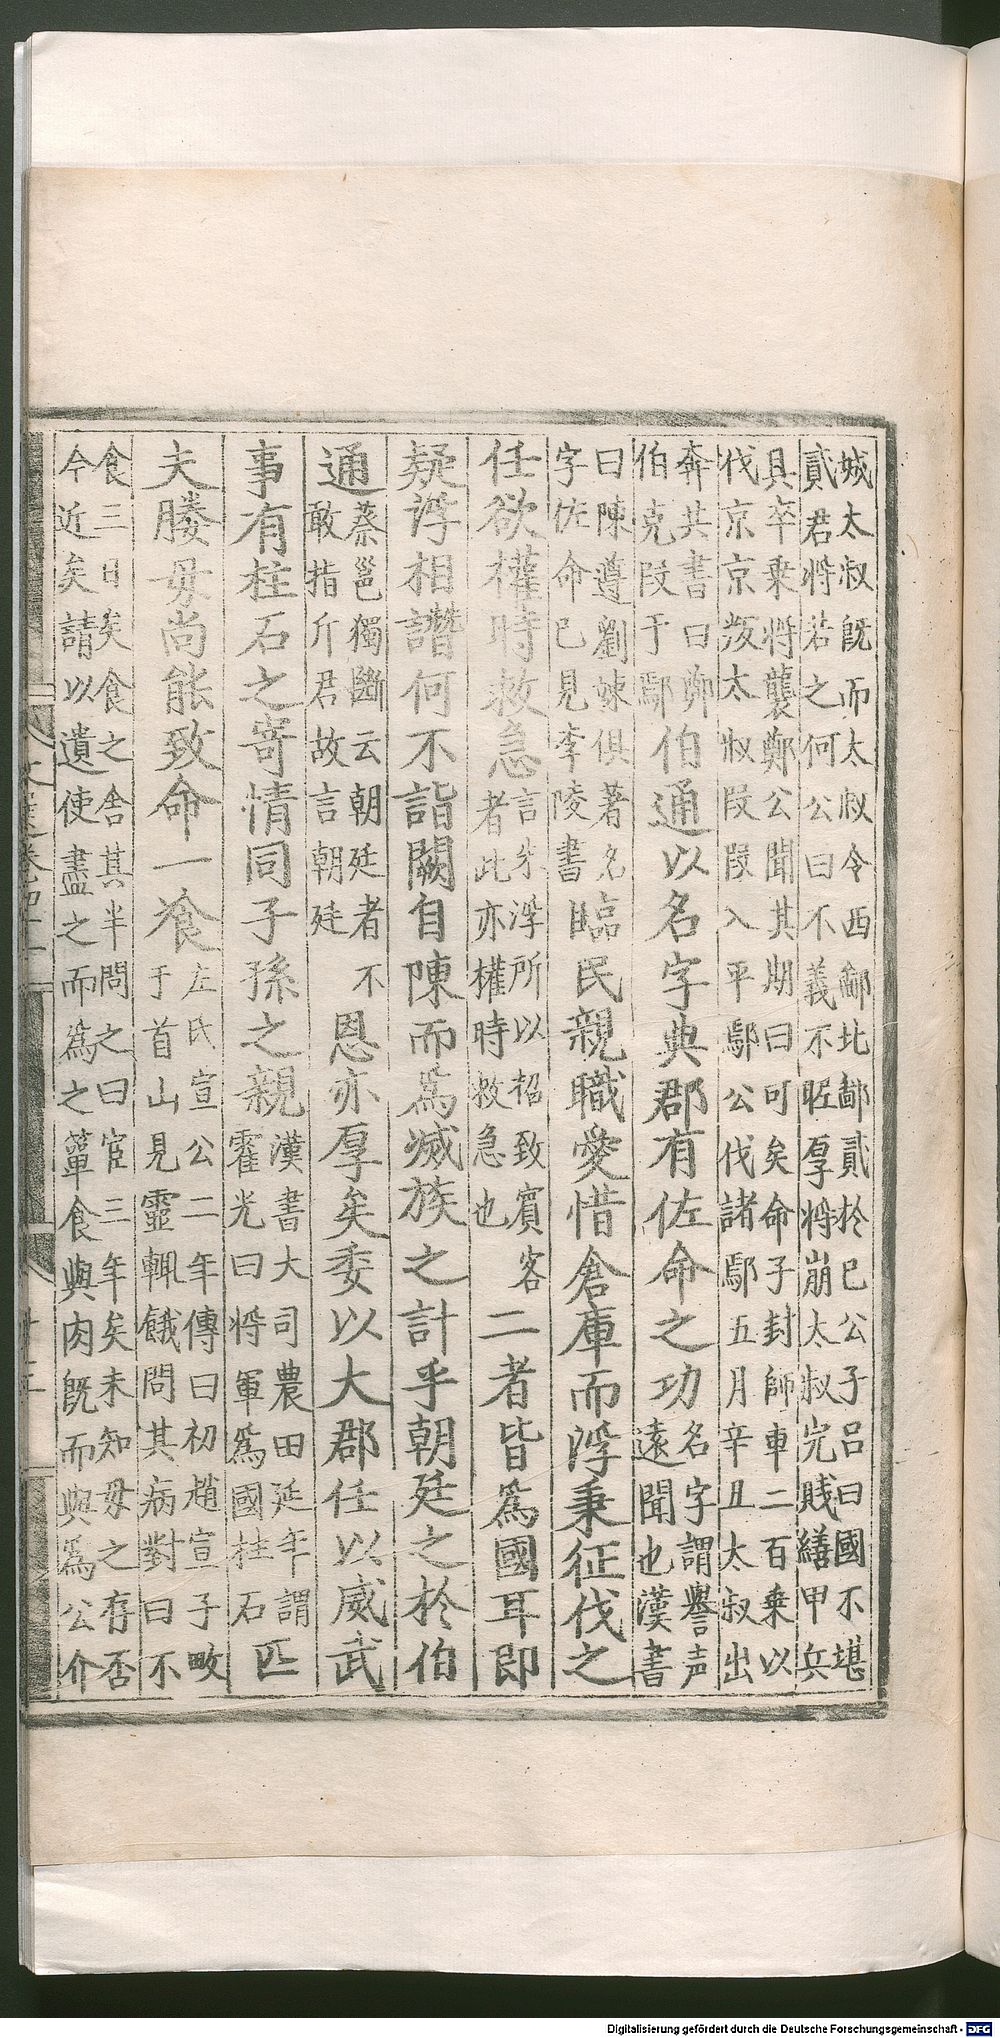 城太叔既而太叔令西鄙北鄙貳於已公子吕曰國不堪
貳君將若之何公曰不義不昵厚將崩太叔完賤繕甲兵
具卒乗將襲鄭公聞其期曰可矣命子封師車二百乗以
伐京京叛太叔叚叚入平鄢公伐諸鄢五月辛丑太叔出
奔共書曰鄭
伯克叚于鄢
伯通以名字典郡有佐命之功
名字謂譽声
遠聞也漢書
曰陳遵劉竦俱著名
字佐命已見李陵書
臨民親職愛惜倉庫而浮秉征伐之
任欲權時救急
言朱浮所以招致賓客
者此亦權時救急也
二者皆爲國耳即
疑浮相譖何不詣闕自陳而爲滅族之計乎朝廷之於伯
通
蔡邕獨斷云朝廷者不
敢指斤君故言朝廷
恩亦厚矣委以大郡任以威武
事有柱石之寄情同子孫之親
漢書大司農田延年謂
霍光曰將軍爲國柱石
匹
夫媵毋尚能致命一飡
左氏宣公二年傳曰初趙宣子畋
于首山見靈輒餓問其病對曰不
食三日矣食之舍其半問之曰宦三年矣未知毋之存否
今近矣請以遺使盡之而爲之簞食與肉既而與爲公介
文選卷四十一
Digitalisierung gefördert durch die Deutsche Forschungsgemeinschaft - DFG